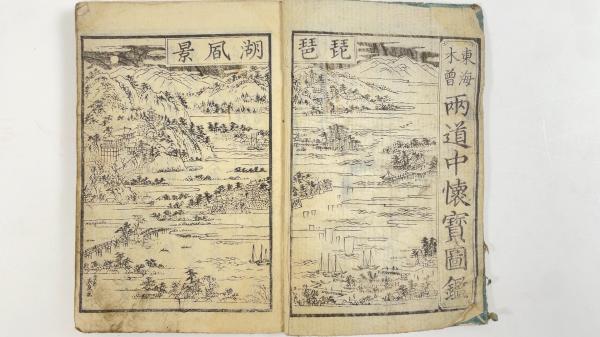 東海
木曽
両道中懐寳圖鑑
琵琶
湖風景